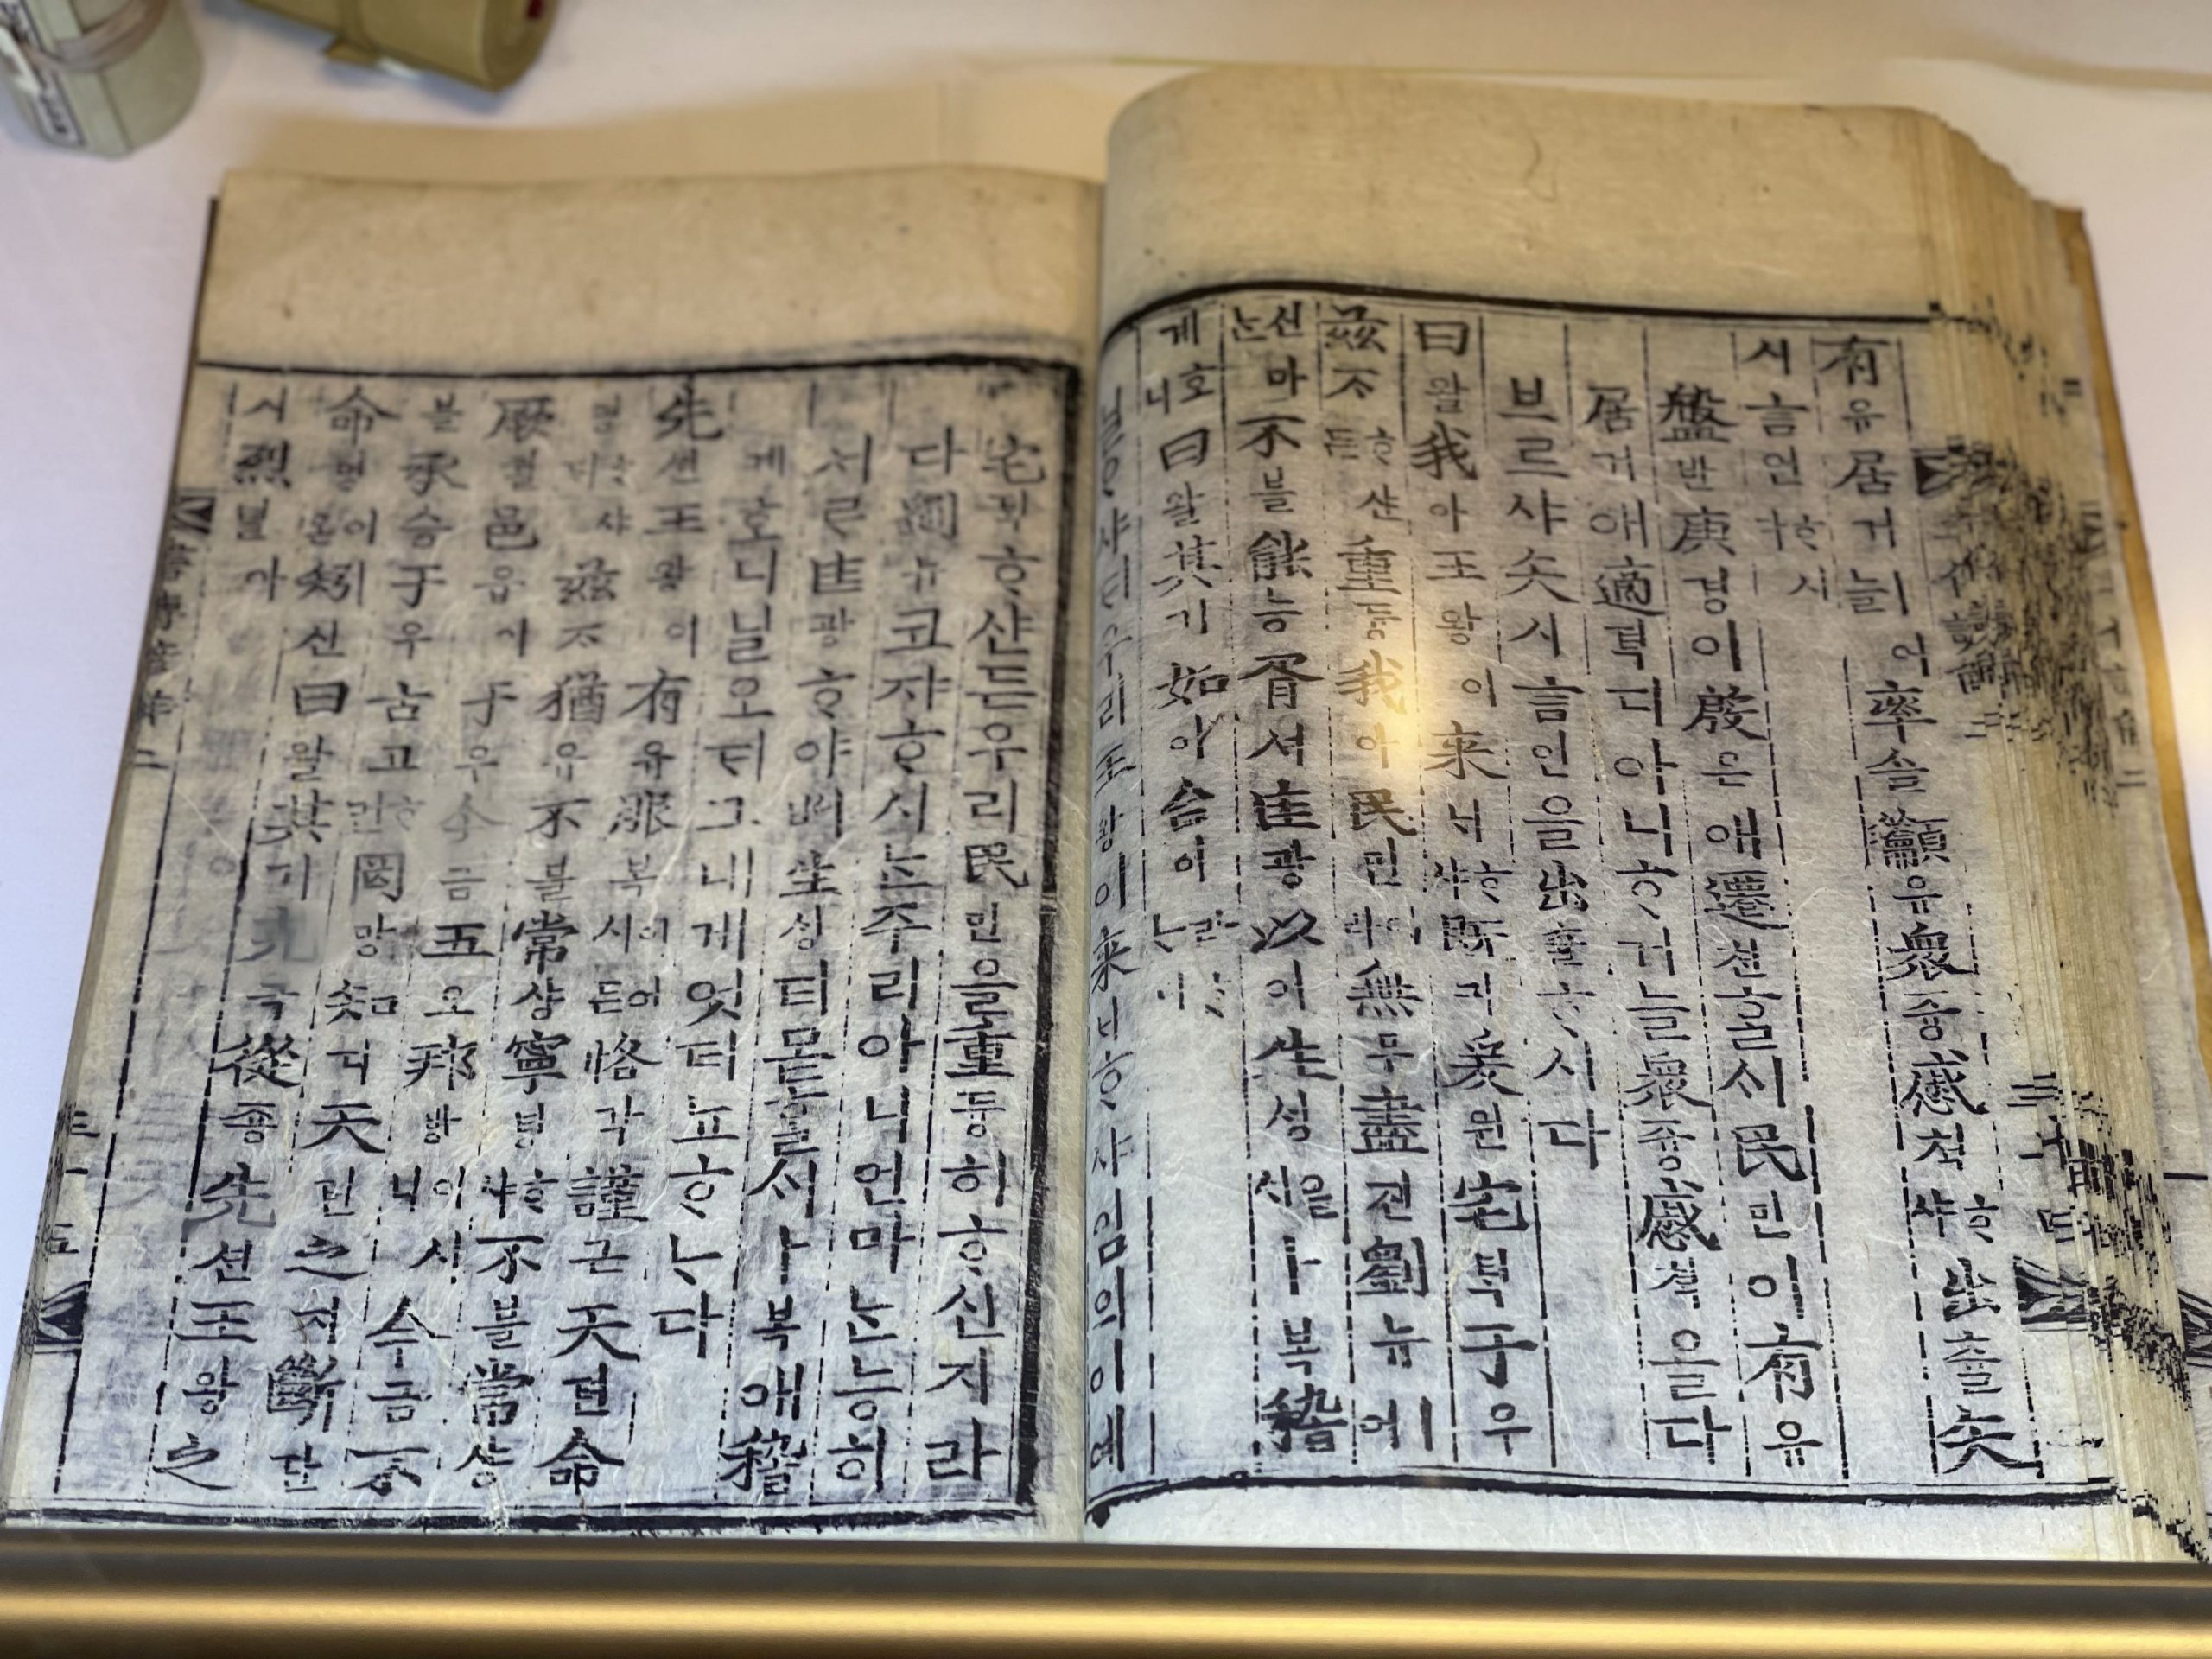 有유居거ㅣ어늘率솔籲유衆중慼쳑ᄒᆞ샤出츌矢
시言언ᄒᆞ시다
盤반庚경이殷은애遷쳔ᄒᆞᆯᄉᆡ民민이有유
居거애適뎍디아니ᄒᆞ거늘衆중慼쳑을다
브르샤矢시言언을出츌ᄒᆞ시다
曰왈我아王왕이來ᄅᆡᄒᆞ샤既긔爰원宅ᄐᆡᆨ于우
玆ᄌᆞᄒᆞ샨든重듕我아民민이라無무盡진劉뉴ㅣ어
신마ᄂᆞᆫ不블能능胥셔匡광以이生ᄉᆡᆼ을ᄉᆡ卜복稽
계호니曰왈其기如여台이라ᄒᆞᄂᆞ니
닐ᄋᆞ샤ᄃᆡ우리王왕이來ᄅᆡᄒᆞ샤임의이예
宅ᄐᆡᆨᄒᆞ샨든우리民민을重듕히ᄒᆞ신지라
다劉뉴코쟈ᄒᆞ시ᄂᆞᆫ주리아니언마ᄂᆞᆫ능히
서르匡광ᄒᆞ야ᄡᅥ生ᄉᆡᆼ티몯ᄒᆞᆯᄉᆡ卜복애稽
계호니닐오ᄃᆡ그내게엇디료ᄒᆞᄂᆞ다
先션王왕이有유服복이어시든恪각謹근天텬命
명ᄒᆞ샤ᄃᆡ玆ᄌᆞ猶유不블常샹寧녕ᄒᆞ샤不블常샹
厥궐邑읍이于우今금五오邦방이시니今금不
블承승于우古고ᄒᆞ란罔망知디天텬之지斷단
命명이온矧신曰왈其기克극從죵先션王왕之
지烈녈아